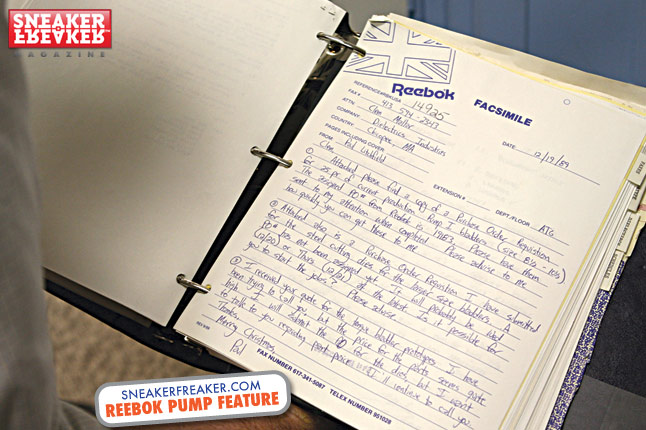 SNEAKER
FREAKER
MAGAZINE
Reebok FACSIMILE
REFERENCE#RBKUSA 14925
FAX # 413 594 2343
ATTN: Clem
COMPANY: Dielectrics Industries
COUNTRY: Chicopee, MA
PAGES INCLUDING COVER
FROM: Paul Litchfield
DATE: 12/19/89
EXTENSION #
DEPT./FLOOR: ATG
Clem,
① Attached, please find a copy of a Purchase Order Requisition
for 25 pr of current production Pump I bladders (size 8½ - 10½).
The assigned PO # from Reebok is 1963. Please have them
sent to my attention when completed. Please advise to me
how quickly you can get these to me.
② Attached also is a Purchase Order Requisition I have submitted
for the steel cutting dies for the larger size bladders. A
PO # has not been assigned yet. It will probably be Wed
(12/20) or Thurs (12/21) at the latest. Is it possible for
you to start the jobs? Please advise.
③ I received your quote for the tongue bladder prototypes. I have
been trying to call you but the price for the parts seems quite
high. I will submit the PO for the dies but I want
to talk to you regarding part price. I will continue to call you
Thanks,
Merry Christmas,
Paul
FAX NUMBER 617-341-5087 TELEX NUMBER 951028
SNEAKERFREAKER.COM
REEBOK PUMP FEATURE